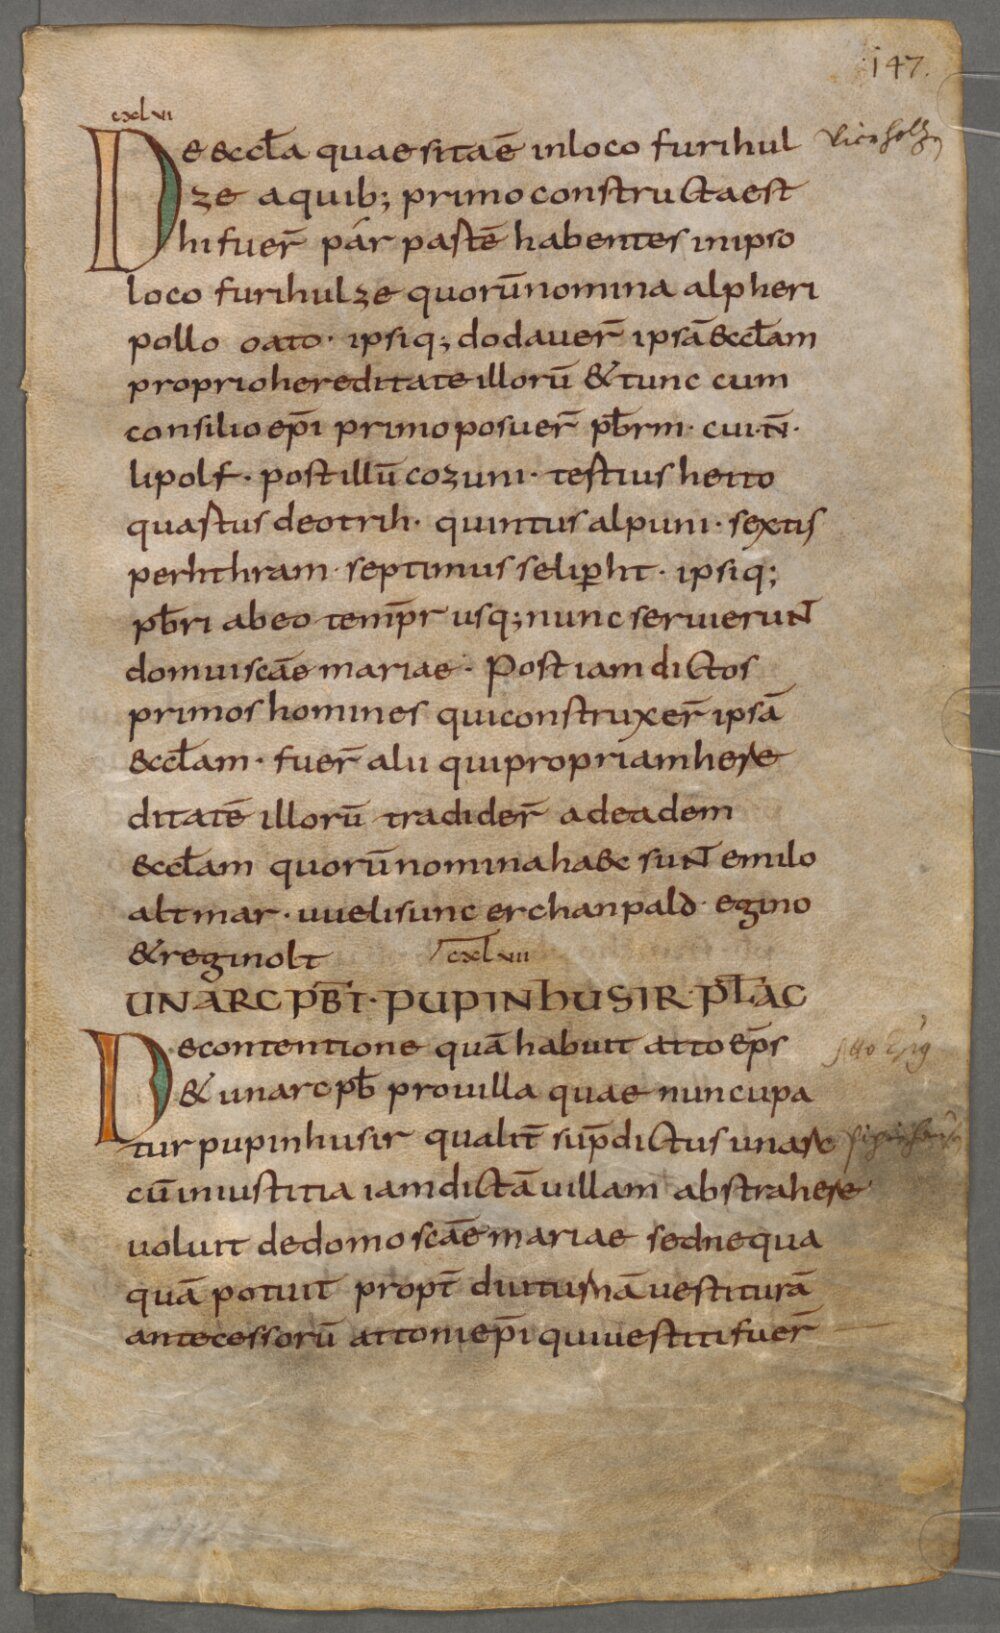 147.
cxlvi
De &ccƚa quae sita ē in loco furihul
ze a quib; primo constructa est
hi fuer̄ pár pastē habentes in ipso
loco furihulze quorū nomina alpheri
pollo oato · ipsiq; dodauer̄ ipsā &ccƚam
proprio hereditate illorū & tunc cum
consilio ep̄i primo posuer̄ pƀrm · cui · N̄ ·
lipolf · post illū cozuni · testius heito
quastus deotrih · quintus alpuni · sextis
perhthram · septimus selip̱ht · ipsiq;
pƀri ab eo temp̄r usq; nunc seruierunt
domui scāe mariae · Post iam dictos
primos homines qui construxer̄ ipsā
&ccƚam · fuer̄ alii qui propriam here
ditatē illorū tradider̄ ad eadem
&ccƚam quorū nomina haec sunt emilo
altmar · uuelisunc erchanpald · egino
& reginolt
cxlvii
UNARC PB̄I · PUPINHUSIR · PL̄AC
De contentione quā habuit atto ep̄s
& unarc pƀ pro uilla quae nuncupa
tur pupinhusir qualit̄ sup̄dictus unarc
cū iniustitia iam dictā uillam abstrahere
uoluit de domo scāe mariae sed nequa
quā potuit propt̄ diuturnā uestiturā
antecessorū attoni ep̄i qui uestiti fuer̄